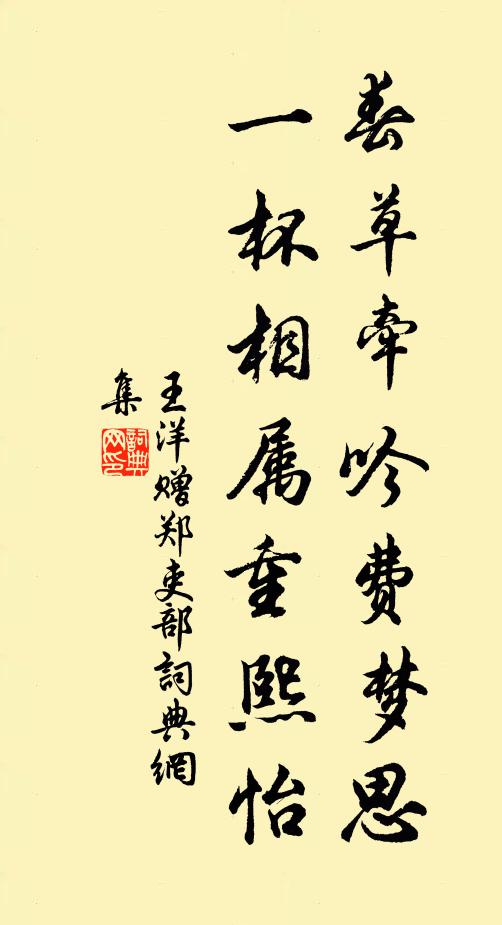 春草牵吟费梦思
一杯相属重熙怡
王洋赠郑吏部詞典網
集
詞典
网印